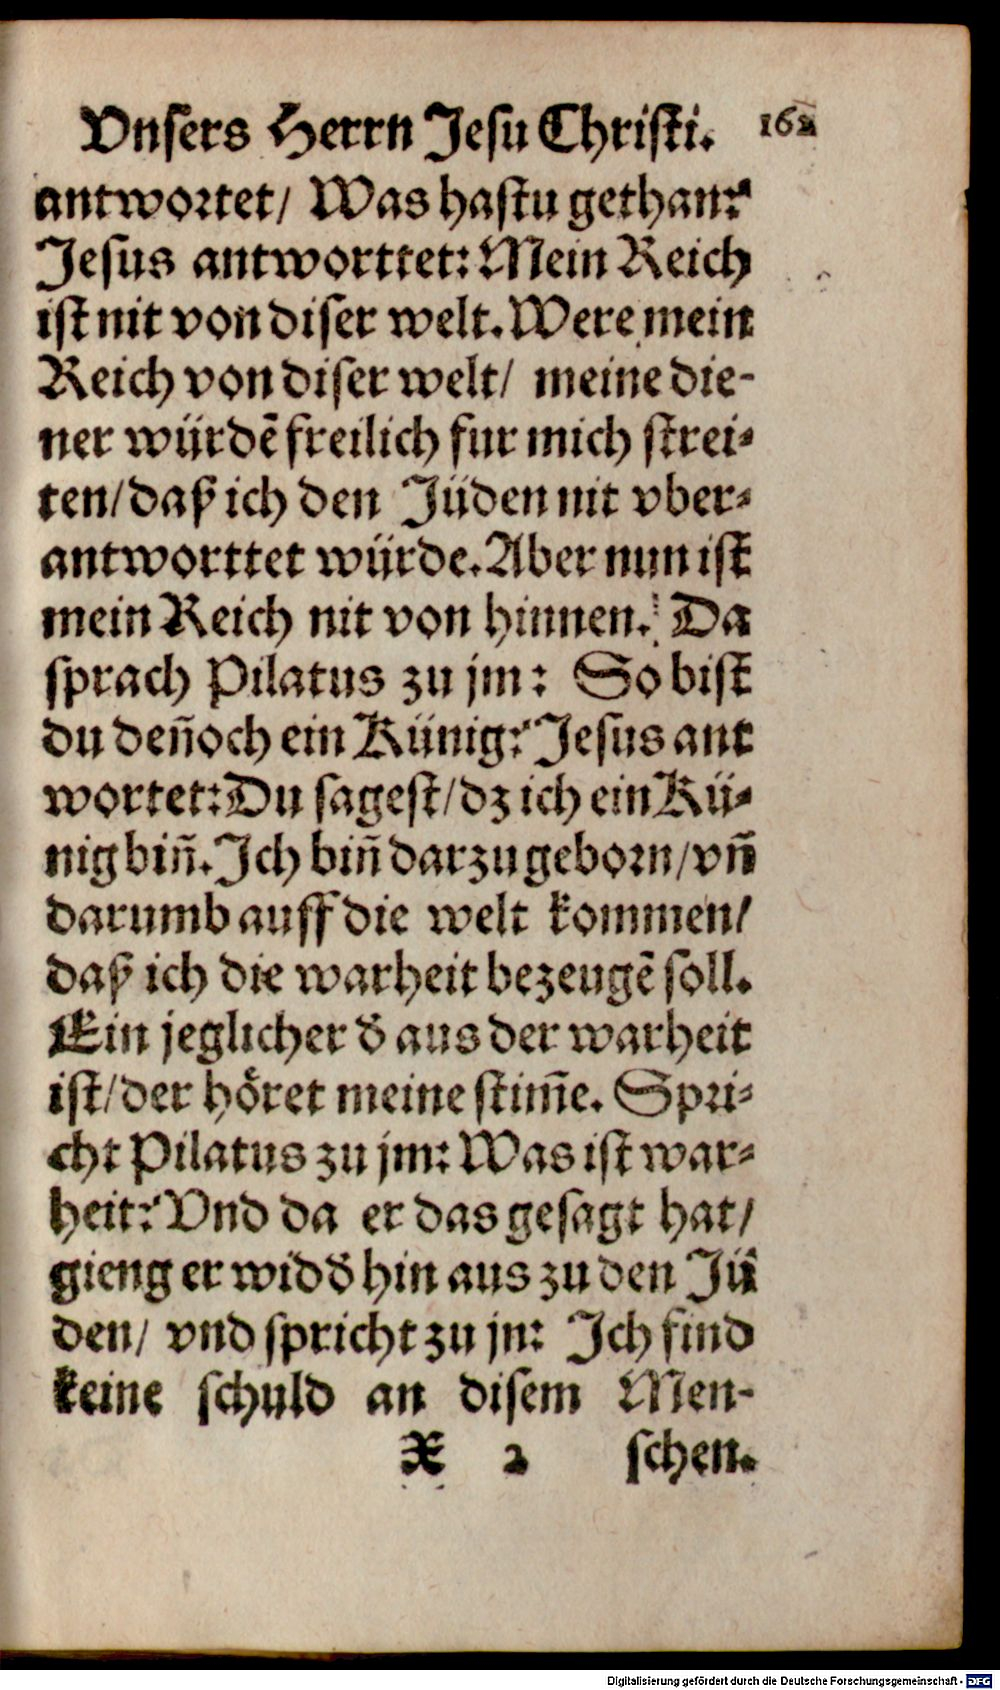 Vnsers Herrn Jesu Christi. 162
antwortet/ Was hastu gethan?
Jesus antworttet: Mein Reich
ist nit von diser welt. Were mein
Reich von diser welt/ meine die-
ner würdē freilich fur mich strei-
ten/ daß ich den Jüden nit vber-
antworttet würde. Aber nun ist
mein Reich nit von hinnen. Da
sprach Pilatus zu jm: So bist
du den̄och ein Künig? Jesus ant
wortet: Du sagest/ dz ich ein Kü-
nig bin̄. Ich bin̄ darzu geborn/ vn̄
darumb auff die welt kommen/
daß ich die warheit bezeugē soll.
Ein jeglicher d̛ aus der warheit
ist/ der höret meine stim̄e. Spri-
cht Pilatus zu jm: Was ist war-
heit? Vnd da er das gesagt hat/
gieng er widd̛ hin aus zu den Jü
den/ vnd spricht zu jn: Ich find
keine schuld an disem Men-
X 2 schen.
Digitalisierung gefördert durch die Deutsche Forschungsgemeinschaft - DFG